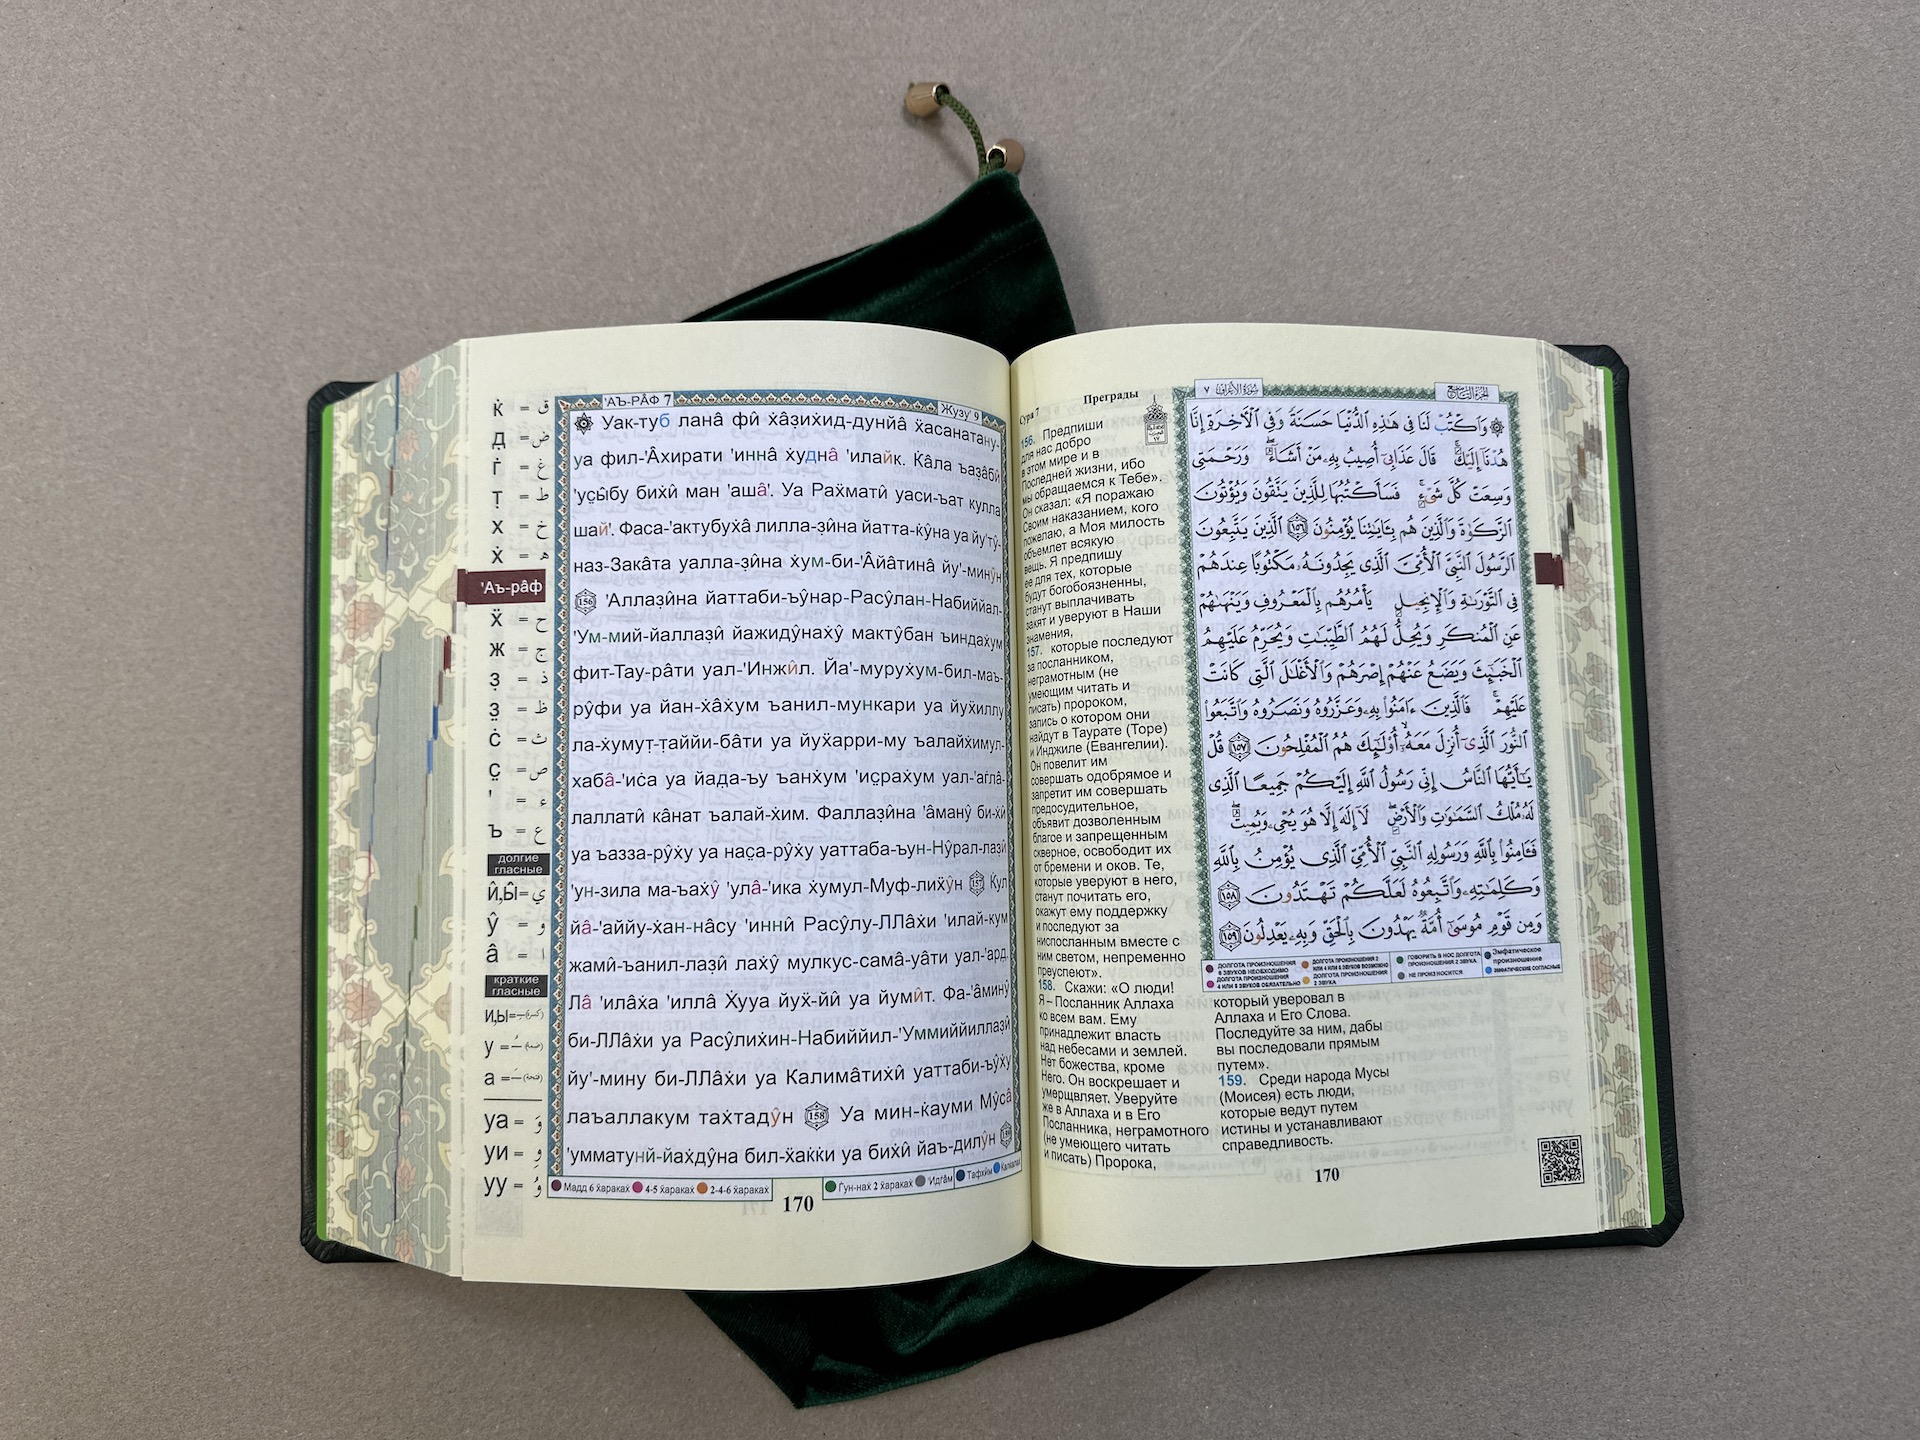 ḳ = ق
д̣ = ض
г̇ = غ
т̣ = ط
х = خ
х̇ = ه
'Аъ-рâф
х̈ = ح
ж = ج
з̣ = ذ
з̤ = ظ
с̇ = ث
с̣ = ص
' = ء
ъ = ع
долгие
гласные
Й,Ы̂= ي
ŷ = و
â = ا
краткие
гласные
и,ы=
у =
а =
уа = وَ
уи = وِ
уу = وُ
'АЪ-РÂФ 7
Жузу' 9
Уак-туб ланâ фӣ х̇âз̣их̇ид-дунйâ х̈асанатану-
уа фил-'Âхирати 'иннâ х̇уднâ 'илайк. К̇âла ъаз̣âбӣ
'ус̣ы̂бу бих̇ӣ ман 'ашâ'. Уа Рах̈матӣ уаси-ъат кулла
шай'. Фаса-'актубух̇â лилла-з̣ӣна йатта-к̇ŷна уа йу'тŷ-
наз-Закâта уалла-з̣ӣна х̇ум-би-'Âйâтинâ йу'-минŷн
156 'Аллаз̣ӣна йаттаби-ъŷнар-Расŷлан-Набиййал-
'Ум-мий-йаллаз̣ӣ йажидŷнах̇ŷ мактŷбан ъиндах̇ум
фит-Тау-рâти уал-'Инжӣл. Йа'-мурух̇ум-бил-маъ-
рŷфи уа йан-х̇âх̇ум ъанил-мункари уа йух̈иллу
ла-х̇умут̣-т̣аййи-бâти уа йух̈арри-му ъалайх̇имул-
хабâ-'ис̇а уа йад̣а-ъу ъанх̇ум 'ис̣рах̇ум уал-'аг̇лâ-
лаллатӣ кâнат ъалай-х̇им. Фаллаз̣ӣна 'âманŷ би-х̇ӣ
уа ъазза-рŷх̇у уа нас̣а-рŷх̇у уаттаба-ъун-Нŷрал-лаз̣ӣ
'ун-зила ма-ъах̇ŷ 'улâ-'ика х̇умул-Муф-лих̈ŷн 157 К̇ул
йâ-'аййу-х̇ан-нâсу 'иннӣ Расŷлу-ЛЛâх̇и 'илай-кум
жамӣ-ъанил-лаз̣ӣ лах̇ŷ мулкус-самâ-уâти уал-'ард̣.
Лâ 'илâх̇а 'иллâ Х̇ууа йух̈-йӣ уа йумӣт. Фа-'âминŷ
би-ЛЛâх̇и уа Расŷлих̇ин-Набиййил-'Уммиййиллаз̣ӣ
йу'-мину би-ЛЛâх̇и уа Калимâтих̇ӣ уаттаби-ъŷх̇у
лаъаллакум тах̇тадŷн 158 Уа мин-к̇ауми Мŷсâ
'умматунӣ-йах̇дŷна бил-х̈ак̇к̇и уа бих̇ӣ йаъ-дилŷн 159
Мадд 6 х̈араках̇ 4-5 х̈араках̇ 2-4-6 х̈араках̇
Г̇ун-нах̇ 2 х̈араках̇ 'Идг̇âм Тафхӣм
170
Сура 7
Преграды
156. Предпиши
для нас добро
в этом мире и в
Последней жизни, ибо
мы обращаемся к Тебе».
Он сказал: «Я поражаю
Своим наказанием, кого
пожелаю, а Моя милость
объемлет всякую
вещь. Я предпишу
ее для тех, которые
будут богобоязненны,
станут выплачивать
закят и уверуют в Наши
знамения,
157. которые последуют
за посланником,
неграмотным (не
умеющим читать и
писать) пророком,
запись о котором они
найдут в Таурате (Торе)
и Инджиле (Евангелии).
Он повелит им
совершать одобрямое и
запретит им совершать
предосудительное,
объявит дозволенным
благое и запрещенным
скверное, освободит их
от бремени и оков. Те,
которые уверуют в него,
станут почитать его,
окажут ему поддержку
и последуют за
ниспосланным вместе с
ним светом, непременно
преуспеют».
158. Скажи: «О люди!
Я – Посланник Аллаха
ко всем вам. Ему
принадлежит власть
над небесами и землей.
Нет божества, кроме
Него. Он воскрешает и
умерщвляет. Уверуйте
же в Аллаха и в Его
Посланника, неграмотного
(не умеющего читать
и писать) Пророка,
سورة الأعراف ٧
الجزء التاسع
۞ وَاكْتُبْ لَنَا فِي هَٰذِهِ الدُّنْيَا حَسَنَةً وَفِي الْآخِرَةِ إِنَّا
هُدْنَا إِلَيْكَ ۚ قَالَ عَذَابِي أُصِيبُ بِهِ مَنْ أَشَاءُ ۖ وَرَحْمَتِي
وَسِعَتْ كُلَّ شَيْءٍ ۚ فَسَأَكْتُبُهَا لِلَّذِينَ يَتَّقُونَ وَيُؤْتُونَ
الزَّكَوٰةَ وَالَّذِينَ هُم بِآيَاتِنَا يُؤْمِنُونَ ١٥٦ الَّذِينَ يَتَّبِعُونَ
الرَّسُولَ النَّبِيَّ الْأُمِّيَّ الَّذِي يَجِدُونَهُ مَكْتُوبًا عِندَهُمْ
فِي التَّوْرَىٰةِ وَالْإِنجِيلِ يَأْمُرُهُم بِالْمَعْرُوفِ وَيَنْهَىٰهُمْ
عَنِ الْمُنكَرِ وَيُحِلُّ لَهُمُ الطَّيِّبَاتِ وَيُحَرِّمُ عَلَيْهِمُ
الْخَبَائِثَ وَيَضَعُ عَنْهُمْ إِصْرَهُمْ وَالْأَغْلَالَ الَّتِي كَانَتْ
عَلَيْهِمْ ۚ فَالَّذِينَ ءَامَنُوا بِهِ وَعَزَّرُوهُ وَنَصَرُوهُ وَاتَّبَعُوا
النُّورَ الَّذِي أُنزِلَ مَعَهُ ۙ أُولَٰئِكَ هُمُ الْمُفْلِحُونَ ١٥٧ قُلْ
يَا أَيُّهَا النَّاسُ إِنِّي رَسُولُ اللَّهِ إِلَيْكُمْ جَمِيعًا الَّذِي
لَهُ مُلْكُ السَّمَاوَاتِ وَالْأَرْضِ ۖ لَا إِلَٰهَ إِلَّا هُوَ يُحْيِي وَيُمِيتُ ۖ
فَآمِنُوا بِاللَّهِ وَرَسُولِهِ النَّبِيِّ الْأُمِّيِّ الَّذِي يُؤْمِنُ بِاللَّهِ
وَكَلِمَاتِهِ وَاتَّبِعُوهُ لَعَلَّكُمْ تَهْتَدُونَ ١٥٨
وَمِن قَوْمِ مُوسَىٰ أُمَّةٌ يَهْدُونَ بِالْحَقِّ وَبِهِ يَعْدِلُونَ ١٥٩
ДОЛГОТА ПРОИЗНОШЕНИЯ 6 ЗВУКОВ НЕОБХОДИМО
ДОЛГОТА ПРОИЗНОШЕНИЯ 2 ИЛИ 4 ИЛИ 6 ЗВУКОВ ВОЗМОЖНО
ГОВОРИТЬ В НОС ДОЛГОТА ПРОИЗНОШЕНИЯ 2 ЗВУКА
Эмфатическое произношение
ДОЛГОТА ПРОИЗНОШЕНИЯ 4 ИЛИ 5 ЗВУКОВ ОБЯЗАТЕЛЬНО
ДОЛГОТА ПРОИЗНОШЕНИЯ 2 ЗВУКА
НЕ ПРОИЗНОСИТСЯ
ЭМФАТИЧЕСКИЕ СОГЛАСНЫЕ
который уверовал в
Аллаха и Его Слова.
Последуйте за ним, дабы
вы последовали прямым
путем».
159. Среди народа Мусы
(Моисея) есть люди,
которые ведут путем
истины и устанавливают
справедливость.
170